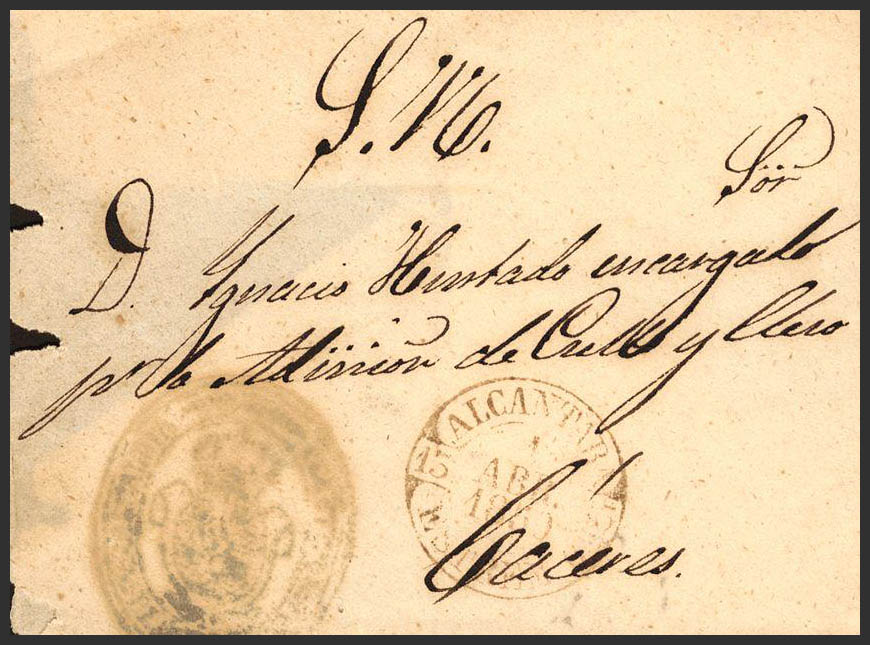 S. N.
Sör
D. Ygnacio Hurtado encargado
pr la Adiiiión de Culto y Clero
ALCANTARA
12
ABR
18
Cáceres.